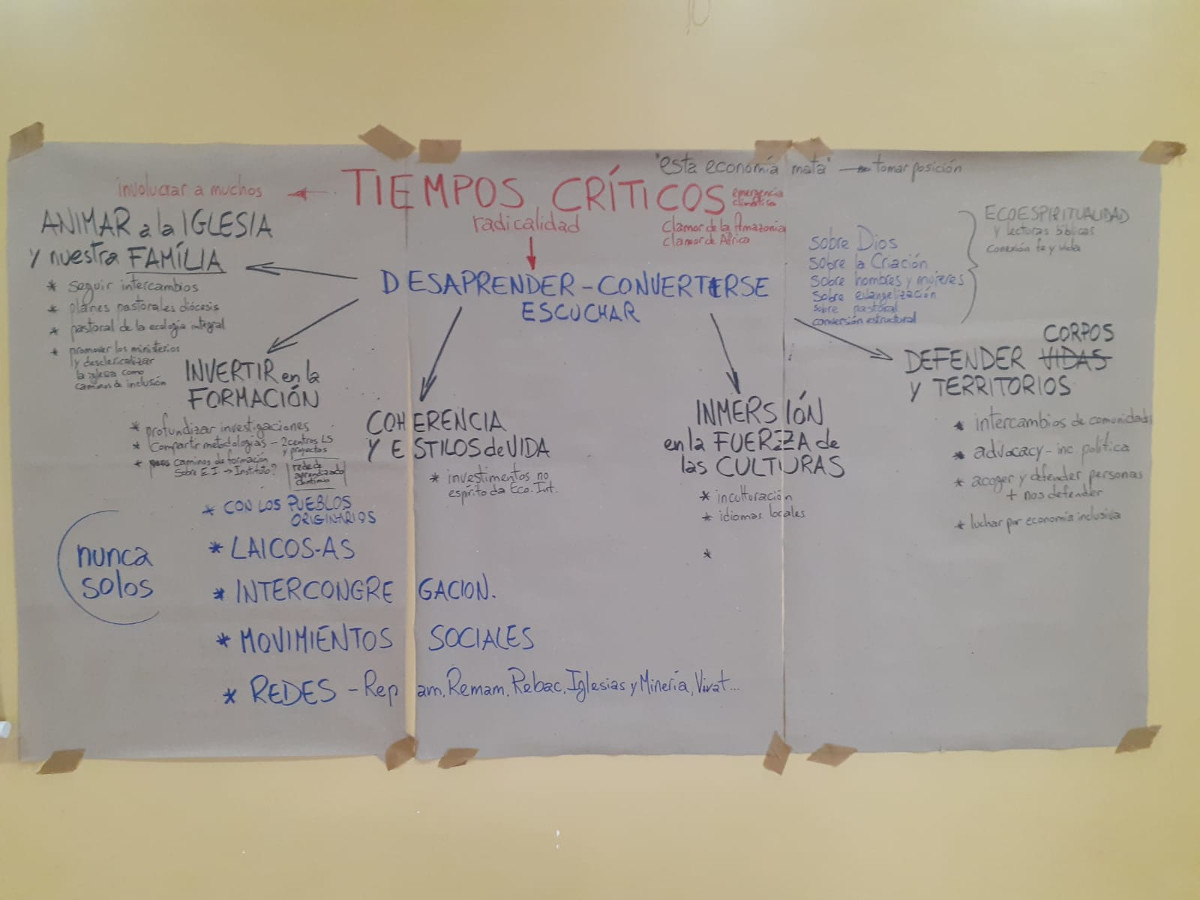 "esta economía mata" → tomar posición
involucrar a muchos ← TIEMPOS CRÍTICOS emergencia
climática
radicalidad
clamor de la Amazonía
clamor de África
DESAPRENDER - CONVERTIRSE
ESCUCHAR
sobre Dios
sobre la Criación
sobre hombres y mujeres
sobre evangelización
sobre pastoral
conversión estructural
ECOESPIRITUALIDAD
y lecturas bíblicas
conexión fe y vida
ANIMAR a la IGLESIA
y nuestra FAMÍLIA
* seguir intercambios
* planes pastorales diócesis
* pastoral de la ecología integral
* promover los ministerios
y desclericalizar
la iglesia como
camino de inclusión
INVERTIR en la
FORMACIÓN
* profundizar investigaciones
* Compartir metodologías - 2 centros LS
y proyectos
* caminos de formación
Sobre E.I → Instituto?
rede de
aprendizado
contínuo
COHERENCIA
Y ESTILOS de VIDA
* investimentos no
espírito da Eco. Int.
INMERSIÓN
en la FUERZA de
las CULTURAS
* inculturación
* idiomas locales
*
CORPOS
DEFENDER VIDAS
y TERRITORIOS
* intercambios de comunidades
* advocacy - inc. política
* acoger y defender personas
+ nos defender
* luchar por economía inclusiva
nunca
solos
* CON LOS PUEBLOS
ORIGINARIOS
* LAICOS-AS
* INTERCONGREGACION.
* MOVIMIENTOS SOCIALES
* REDES - Repam, Remam, Rebac, Iglesias y Minería, Vivat...